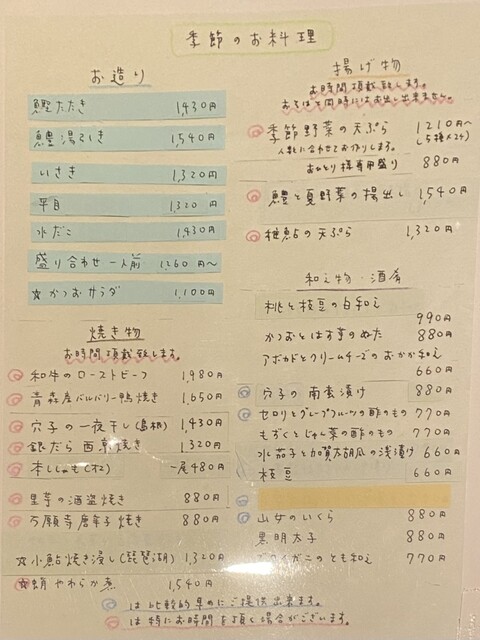 季節のお料理
お造り
鰹たたき 1,430円
鱧湯びき 1,540円
いさき 1,320円
平目 1,320円
水だこ 1,430円
盛り合わせ一人前 1,260円〜
☆かつおサラダ 1,100円
焼き物
お時間頂戴致します。
◎和牛のローストビーフ 1,980円
◎青森産バルバリー鴨焼き 1,650円
◎穴子の一夜干し(島根) 1,430円
◎銀だら西京焼き 1,320円
◎本ししゃも(オス) 一尾480円
◎里芋の酒盗焼き 880円
◎万願寺唐辛子焼き 880円
☆小鮎焼き浸し(琵琶湖) 1,320円
☆蛸やわらか煮 1,540円
揚げ物
お時間頂戴致します。
おそばと同時にはお出し出来ません。
◎季節野菜の天ぷら 1210円〜
(5種×2ヶ)
人数に合わせてお作りします。
おひとり様専用盛り 880円
◎鱧と夏野菜の揚出し 1,540円
◎稚鮎の天ぷら 1,320円
和え物・酒肴
桃と枝豆の白和え
990円
かつおとはす芋のぬた 880円
アボカドとクリームチーズのおかか和え
660円
◎穴子の南蛮漬け 880円
◎セロリとグレープフルーツの酢のもの 770円
もずくとじゅん菜の酢のもの 770円
水茄子と加賀太胡瓜の浅漬け 660円
枝豆 660円
◎山女のいくら 880円
黒明太子 880円
のとも和え 770円
◎は比較的早めにご提供出来ます。
◎は特にお時間を頂く場合がございます。